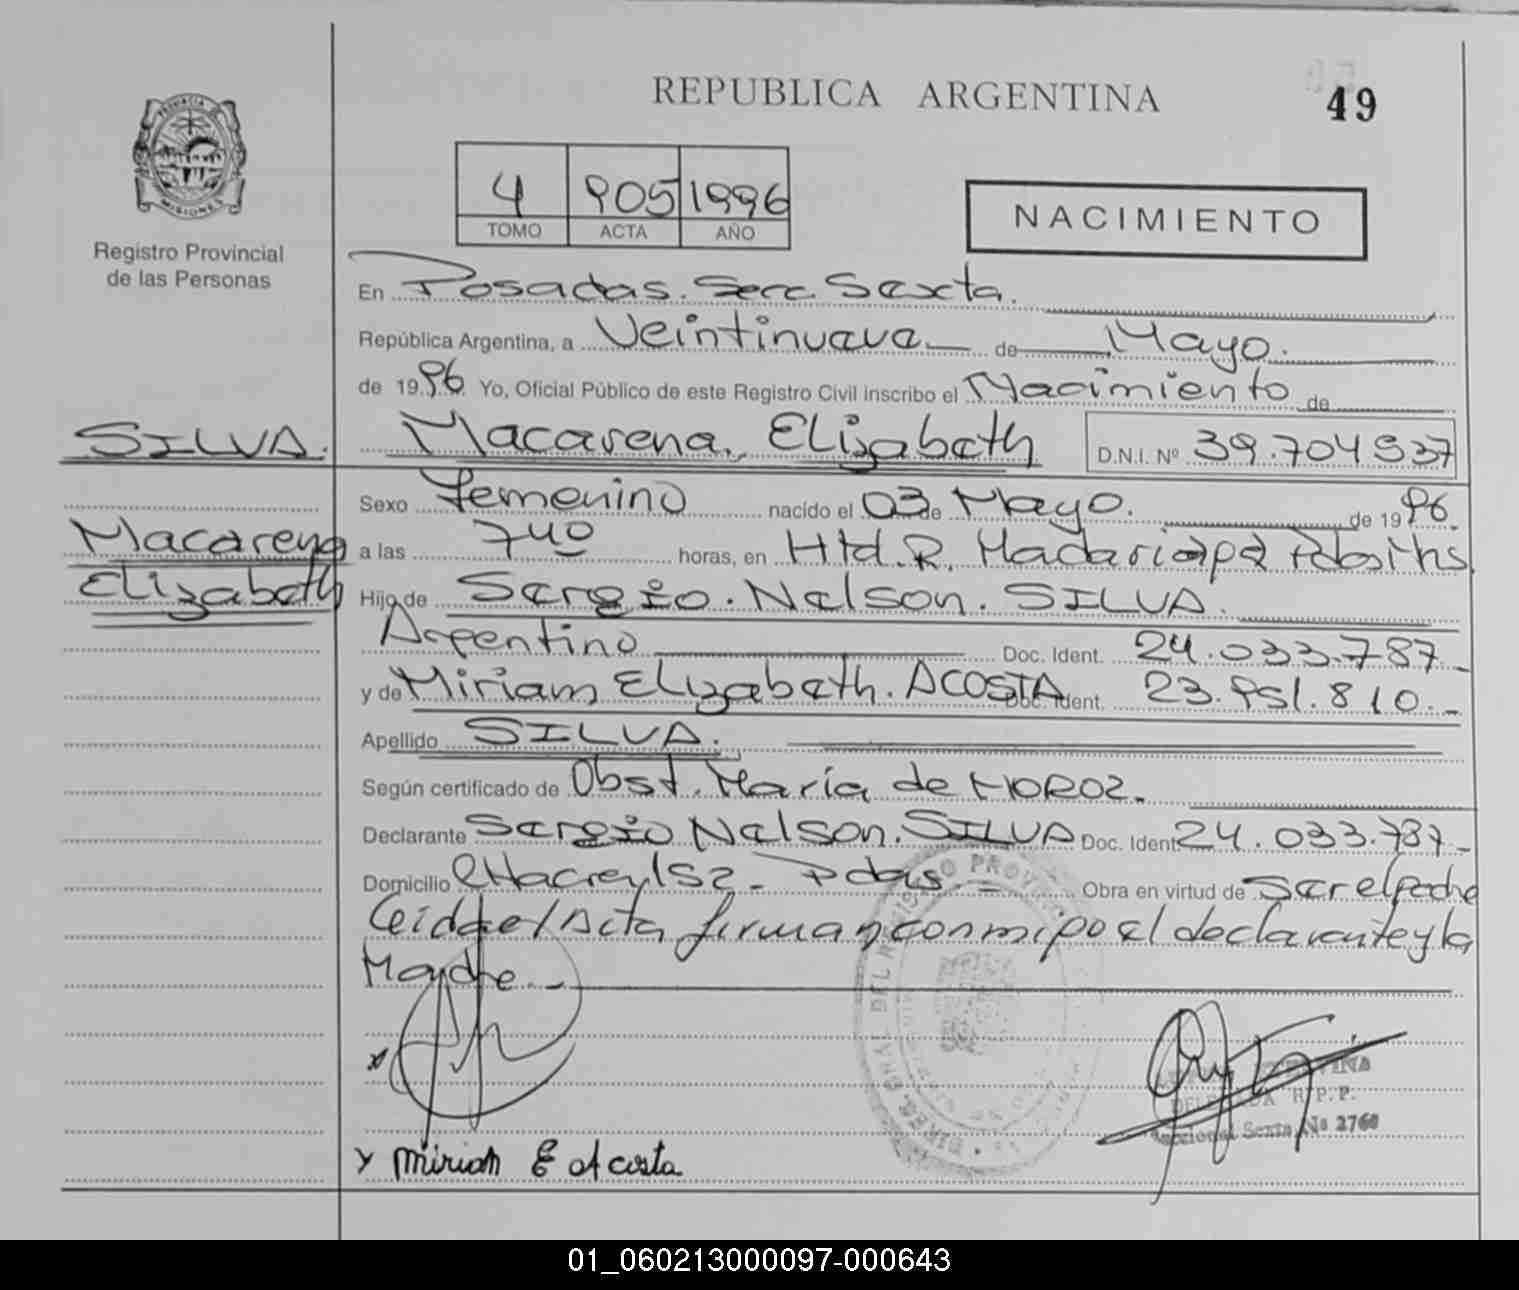 REPUBLICA ARGENTINA
49
PROVINCIA
MISIONES
Registro Provincial
de las Personas
4 905 1996
TOMO ACTA AÑO
NACIMIENTO
En Posadas. Secc. Sexta.
República Argentina, a Veintinueve de Mayo.
de 1996 Yo, Oficial Público de este Registro Civil inscribo el Nacimiento de
SILVA. Macarena, Elizabeth D.N.I. Nº 39.704 937
Sexo Femenino nacido el 03 de Mayo. de 1996.
Macarena
Elizabeth
a las 7 40 horas, en Htal. R. Madariaga
Hijo de Sergio. Nelson. SILVA.
Argentino Doc. Ident. 24.033.787_
y de Miriam Elizabeth. ACOSTA Doc. Ident. 23.951.810._
Apellido SILVA.
Según certificado de Obst. María de MOROZ.
Declarante Sergio Nelson. SILVA Doc. Ident. 24.033.787_
Domicilio 152_ Pdas Obra en virtud de Ser el padre
Leida el Acta firman conmigo el declarante y la
Madre._
DELEGADA R.P.P.
Seccional Sexta Nº 2760
y Miriam E Acosta
01_060213000097-000643